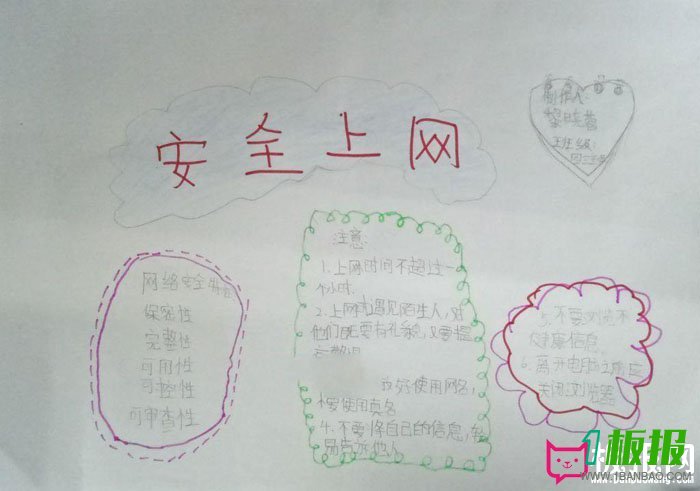 安全上网
制作人:
班级:
网络安全
保密性
完整性
可用性
可控性
可审查性
注意:
1.上网时间不超过一
个小时.
2.上网时遇见陌生人,对
他们既要有礼貌,又要提
使用网名,
不要使用真名
4.不要将自己的信息,轻
易告诉他人
5.不要浏览不
健康信息
6.离开电脑
关闭浏览器
1板报
WWW.1BANBAO.COM